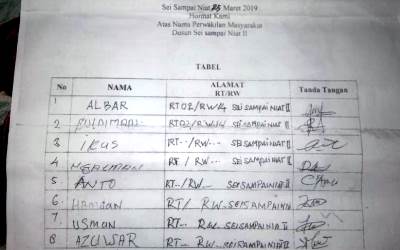 Sei Sampai Niat 25 Maret 2019
Hormat Kami
Atas Nama Perwakilan Masyarakat
Dusun Sei sampai Niat II
TABEL
No NAMA ALAMAT RT/RW Tanda Tangan
1 ALBAR RT02/RW14 SEI SAMPAI NIAT II
2 RT02/RW14 SEI SAMPAI NIAT II
3 IKUS RT../RW... SEI SAMPAI NIAT II
4 RT/RW SEI SAMPAI NIAT II
5. ANTO RT../RW... SEI SAMPAI NIAT II
6 RT/RW SEI SAMPAI NIA
7. USMAN RT.. RW.. SEI SAMPAI NIAT II
8 AZUWAR RT... RW.. SEI SAMPAI NIAT II